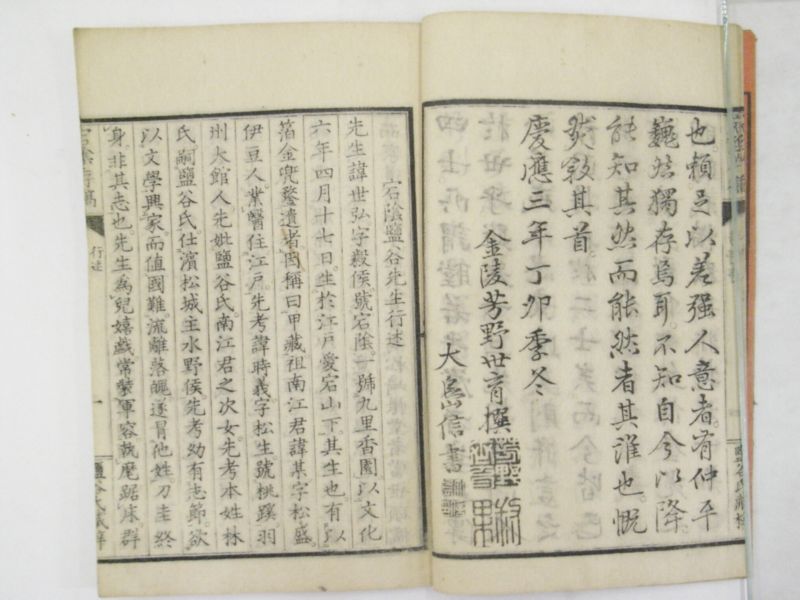 也賴足以差强人意者有仲平
巍然獨存焉耳不知自今以降
能知其然而能然者其誰也慨
然敘其首
慶應三年丁卯季冬
金陵芳野世育撰
大島信書
宕陰鹽谷先生行述
先生諱世弘字毅侯號宕陰一號九里香園以文化
六年四月十七日生於江戶愛宕山下其生也有以
箔金兜鍪遺者因稱曰甲藏祖南江君諱某字松盛
伊豆人業醫住江戶先考諱時義字松生號桃蹊羽
州大館人先妣鹽谷氏南江君之次女先考本姓林
氏嗣鹽谷氏仕濱松城主水野侯先考幼有志節欲
以文學興家而値國難流離落魄遂冒他姓刀圭終
身非其志也先生為兒嬉戲常裝軍容執麾踞床群
宕陰存稿
行述
一